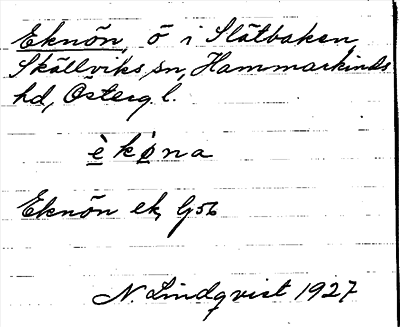 Eknön, ö i Slätbaken,
Skällviks sn, Hammarkinds
hd, Österg. l.
è kø̀na
Eknön ek, G 56
N. Lindqvist 1927